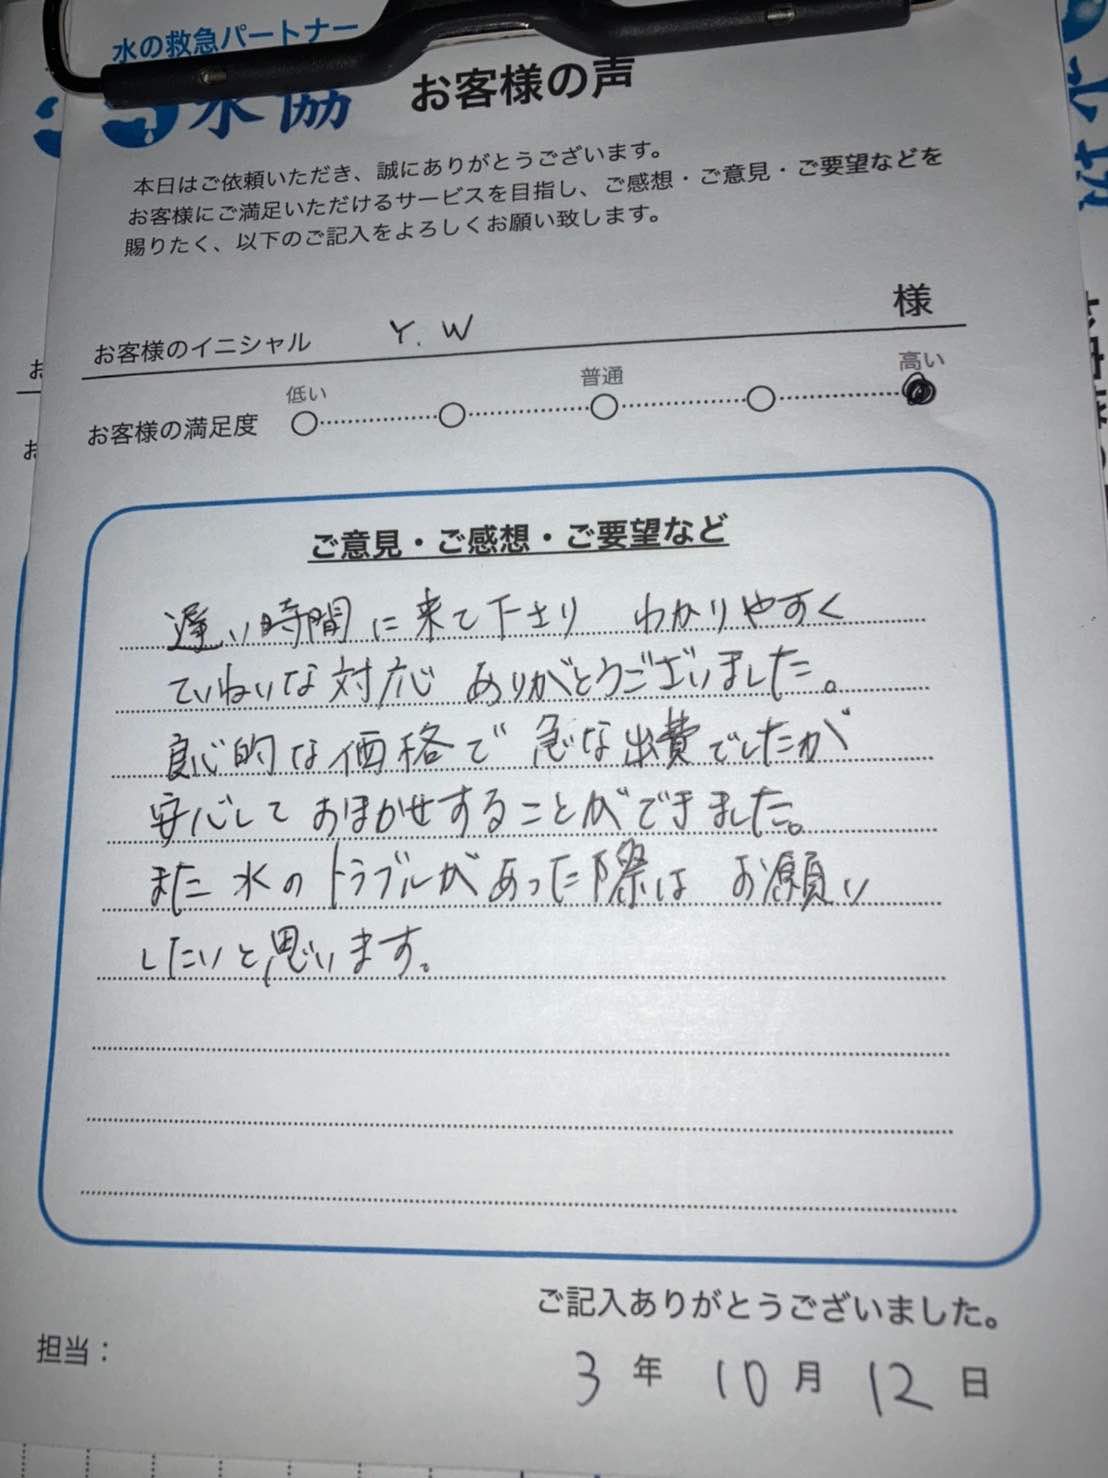 水の救急パートナー
水協
お客様の声
本日はご依頼いただき、誠にありがとうございます。
お客様にご満足いただけるサービスを目指し、ご感想・ご意見・ご要望などを
賜りたく、以下のご記入をよろしくお願い致します。
お客様のイニシャル Y.W 様
低い 普通 高い
お客様の満足度
ご意見・ご感想・ご要望など
遅い時間に来て下さり わかりやすく
ていねいな対応 ありがとうございました。
良心的な価格で 急な出費でしたが
安心して おまかせすることができました。
また 水の トラブルがあった際は お願い
したいと思います。
ご記入ありがとうございました。
担当：
3 年 10 月 12 日